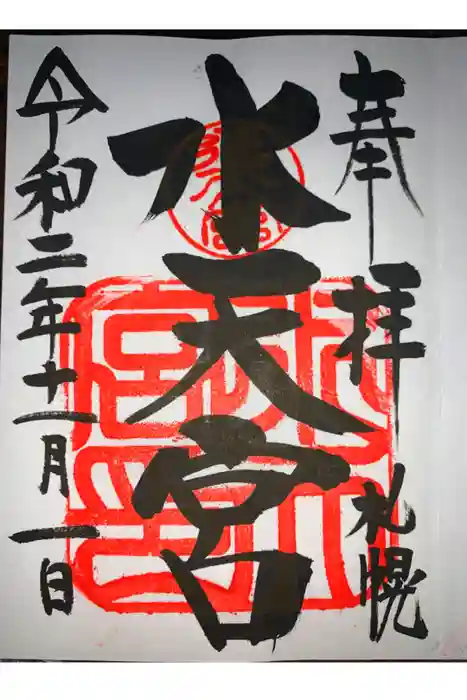 奉拝
札幌
水天宮
令和二年十一月一日